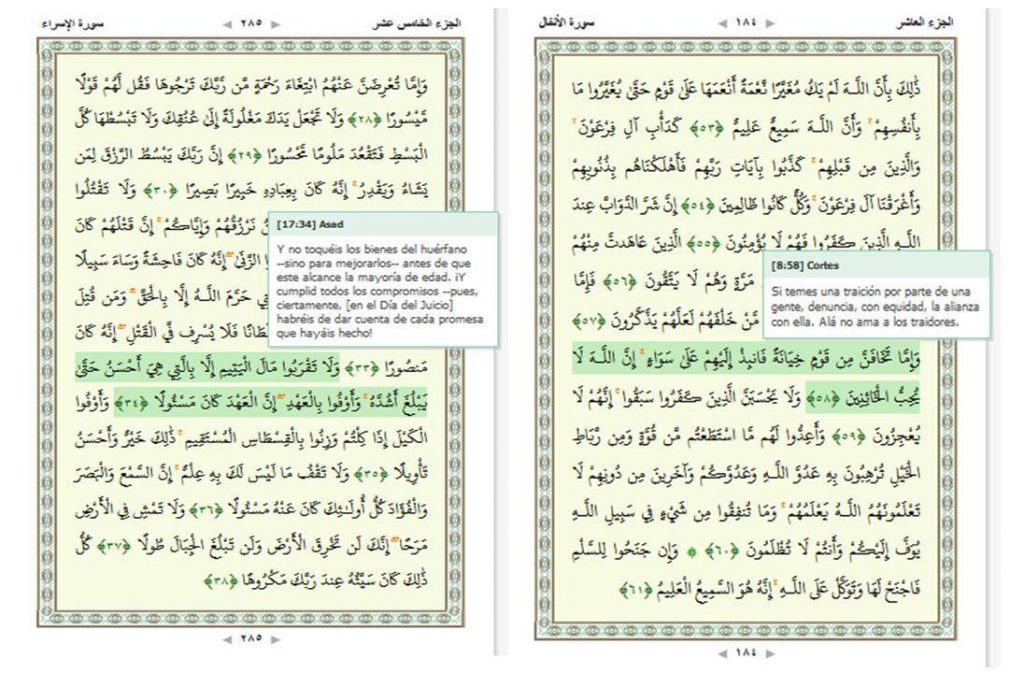 سورة الإسراء ٢٨٥ الجزء الخامس عشر
وَإِمَّا تُعْرِضَنَّ عَنْهُمُ ابْتِغَاءَ رَحْمَةٍ مِّن رَّبِّكَ تَرْجُوهَا فَقُل لَّهُمْ قَوْلًا
مَّيْسُورًا ﴿٢٨﴾ وَلَا تَجْعَلْ يَدَكَ مَغْلُولَةً إِلَىٰ عُنُقِكَ وَلَا تَبْسُطْهَا كُلَّ
الْبَسْطِ فَتَقْعُدَ مَلُومًا مَّحْسُورًا ﴿٢٩﴾ إِنَّ رَبَّكَ يَبْسُطُ الرِّزْقَ لِمَن
يَشَاءُ وَيَقْدِرُ ۚ إِنَّهُ كَانَ بِعِبَادِهِ خَبِيرًا بَصِيرًا ﴿٣٠﴾ وَلَا تَقْتُلُوا
نَرْزُقُهُمْ وَإِيَّاكُمْ ۚ إِنَّ قَتْلَهُمْ كَانَ
الزِّنَىٰ ۖ إِنَّهُ كَانَ فَاحِشَةً وَسَاءَ سَبِيلًا
حَرَّمَ اللَّهُ إِلَّا بِالْحَقِّ ۗ وَمَن قُتِلَ
فَلَا يُسْرِف فِّي الْقَتْلِ ۖ إِنَّهُ كَانَ
[17:34] Asad
Y no toquéis los bienes del huérfano
--sino para mejorarlos-- antes de que
este alcance la mayoría de edad. ¡Y
cumplid todos los compromisos --pues,
ciertamente, [en el Día del Juicio]
habréis de dar cuenta de cada promesa
que hayáis hecho!
مَنصُورًا ﴿٣٣﴾ وَلَا تَقْرَبُوا مَالَ الْيَتِيمِ إِلَّا بِالَّتِي هِيَ أَحْسَنُ حَتَّىٰ
يَبْلُغَ أَشُدَّهُ ۚ وَأَوْفُوا بِالْعَهْدِ ۖ إِنَّ الْعَهْدَ كَانَ مَسْئُولًا ﴿٣٤﴾ وَأَوْفُوا
الْكَيْلَ إِذَا كِلْتُمْ وَزِنُوا بِالْقِسْطَاسِ الْمُسْتَقِيمِ ۚ ذَٰلِكَ خَيْرٌ وَأَحْسَنُ
تَأْوِيلًا ﴿٣٥﴾ وَلَا تَقْفُ مَا لَيْسَ لَكَ بِهِ عِلْمٌ ۚ إِنَّ السَّمْعَ وَالْبَصَرَ
وَالْفُؤَادَ كُلُّ أُولَٰئِكَ كَانَ عَنْهُ مَسْئُولًا ﴿٣٦﴾ وَلَا تَمْشِ فِي الْأَرْضِ
مَرَحًا ۖ إِنَّكَ لَن تَخْرِقَ الْأَرْضَ وَلَن تَبْلُغَ الْجِبَالَ طُولًا ﴿٣٧﴾ كُلُّ
ذَٰلِكَ كَانَ سَيِّئُهُ عِندَ رَبِّكَ مَكْرُوهًا ﴿٣٨﴾
٢٨٥
سورة الأنفال ١٨٤ الجزء العاشر
ذَٰلِكَ بِأَنَّ اللَّهَ لَمْ يَكُ مُغَيِّرًا نِّعْمَةً أَنْعَمَهَا عَلَىٰ قَوْمٍ حَتَّىٰ يُغَيِّرُوا مَا
بِأَنفُسِهِمْ ۙ وَأَنَّ اللَّهَ سَمِيعٌ عَلِيمٌ ﴿٥٣﴾ كَدَأْبِ آلِ فِرْعَوْنَ ۙ
وَالَّذِينَ مِن قَبْلِهِمْ ۚ كَذَّبُوا بِآيَاتِ رَبِّهِمْ فَأَهْلَكْنَاهُم بِذُنُوبِهِمْ
وَأَغْرَقْنَا آلَ فِرْعَوْنَ ۚ وَكُلٌّ كَانُوا ظَالِمِينَ ﴿٥٤﴾ إِنَّ شَرَّ الدَّوَابِّ عِندَ
اللَّهِ الَّذِينَ كَفَرُوا فَهُمْ لَا يُؤْمِنُونَ ﴿٥٥﴾ الَّذِينَ عَاهَدتَّ مِنْهُمْ
مَرَّةٍ وَهُمْ لَا يَتَّقُونَ ﴿٥٦﴾ فَإِمَّا
مَّنْ خَلْفَهُمْ لَعَلَّهُمْ يَذَّكَّرُونَ ﴿٥٧﴾
[8:58] Cortes
Si temes una traición por parte de una
gente, denuncia, con equidad, la alianza
con ella. Alá no ama a los traidores.
وَإِمَّا تَخَافَنَّ مِن قَوْمٍ خِيَانَةً فَانبِذْ إِلَيْهِمْ عَلَىٰ سَوَاءٍ ۚ إِنَّ اللَّهَ لَا
يُحِبُّ الْخَائِنِينَ ﴿٥٨﴾ وَلَا يَحْسَبَنَّ الَّذِينَ كَفَرُوا سَبَقُوا ۚ إِنَّهُمْ لَا
يُعْجِزُونَ ﴿٥٩﴾ وَأَعِدُّوا لَهُم مَّا اسْتَطَعْتُم مِّن قُوَّةٍ وَمِن رِّبَاطِ
الْخَيْلِ تُرْهِبُونَ بِهِ عَدُوَّ اللَّهِ وَعَدُوَّكُمْ وَآخَرِينَ مِن دُونِهِمْ لَا
تَعْلَمُونَهُمُ اللَّهُ يَعْلَمُهُمْ ۚ وَمَا تُنفِقُوا مِن شَيْءٍ فِي سَبِيلِ اللَّهِ
يُوَفَّ إِلَيْكُمْ وَأَنتُمْ لَا تُظْلَمُونَ ﴿٦٠﴾ ۞ وَإِن جَنَحُوا لِلسَّلْمِ
فَاجْنَحْ لَهَا وَتَوَكَّلْ عَلَى اللَّهِ ۚ إِنَّهُ هُوَ السَّمِيعُ الْعَلِيمُ ﴿٦١﴾
١٨٤